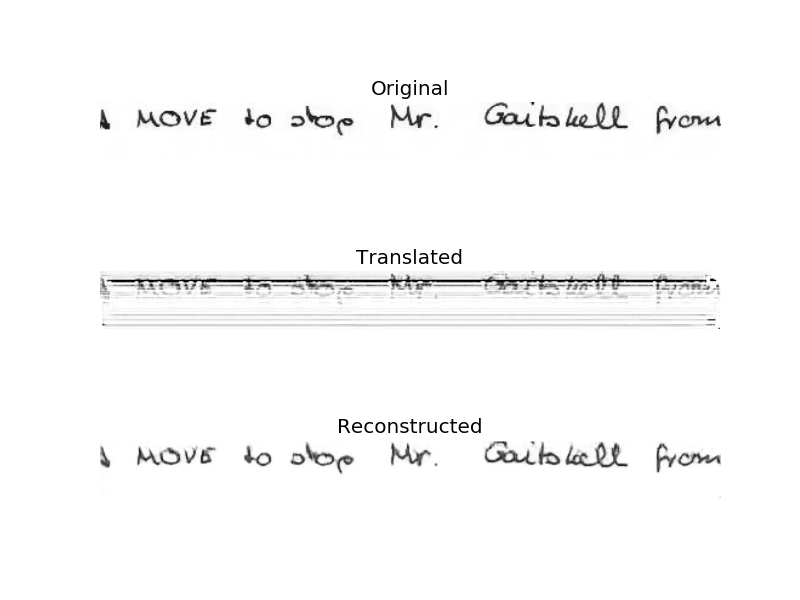 Original
MOVE to stop Mr. Gaitskell from
Translated
MOVE to stop Mr. Gaitskell from
Reconstructed
MOVE to stop Mr. Gaitskell from